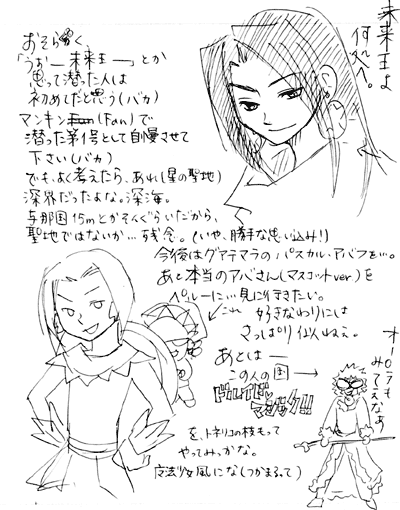 未来王よ
何処へ。
おそらく、
「うおー未来王ー」とか
思って潜った人は
初めてだと思う(バカ)
マンキン(Fan)で
潜った第1号として自慢させて
下さい(バカ)
でも、よく考えたら、あれ(星の聖地)
深界だったよな。深海。
与那国15mとかそんぐらいだから、
聖地ではないか…残念。(いや、勝手な思い込み!)
今後はグアテマラのパスカル・アバフを…。
あと本当のアバさん(マスコットver.)を
ペルーに…見に行きたい。
これ 好きなわりには
さっぱり似んねぇ。
あとは―
この人の国→
ドルイドマジック!!
を、トネリコの枝もって
やってみっかな。
魔法少女風にな(つかまるって)
オーロラも
みてぇなあ